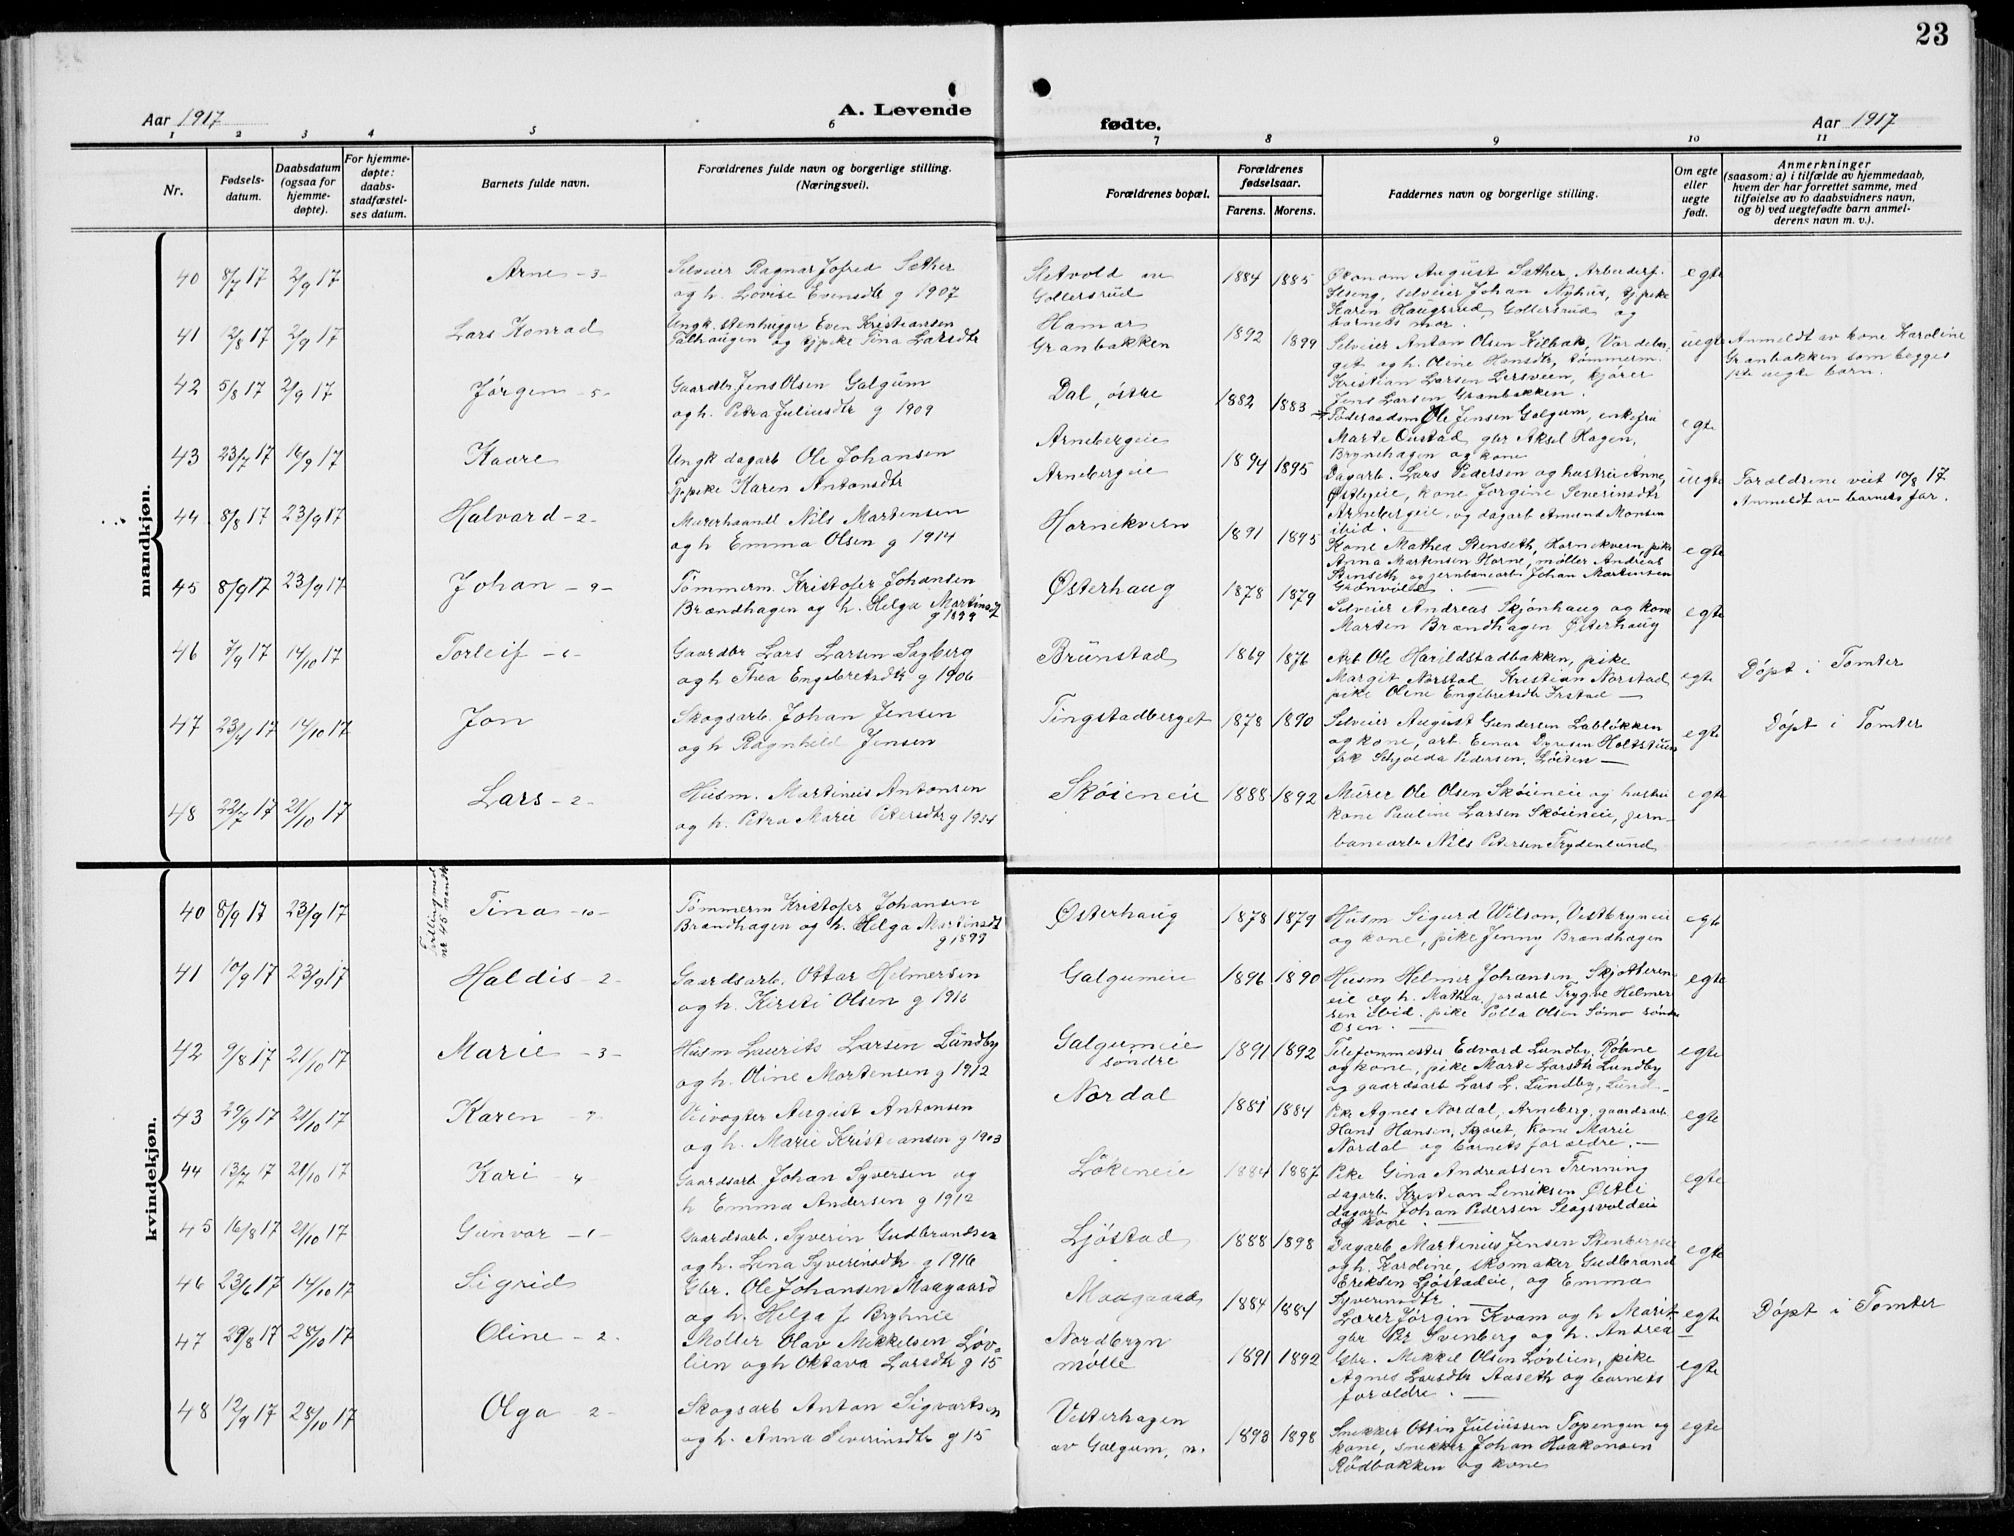 23
Aar 1917
A. Levende
fødte.
Aar 1917
1 2 3 4 5 6 7 8 9 10 11
Nr.
Fødsels-
datum.
Daabsdatum
(ogsaa for
hjemme-
døpte).
For hjemme-
døpte:
daabs-
stadfæstel-
ses datum.
Barnets fulde navn.
Forældrenes fulde navn og borgerlige stilling.
(Næringsvei).
Forældrenes bopæl.
Forældrenes
fødselsaar.
Farens. Morens.
Faddernes navn og borgerlige stilling.
Om egte
eller
uegte
født.
Anmerkninger
(saasom: a) i tilfælde av hjemmedaab,
hvem der har forrettet samme, med
tilføielse av to daabsvidners navn,
og b) ved uegtefødte barn anmel-
derens navn m. v.).
mandkjøn.
40 8/7 17 2/9 17 Arne - 3 -
Selveier Ragnar Jofred Sæther
og h. Lovise Evensdtr g 1907
Gollersrud
1884 1885
Økonom August Sæther, Arbeiderf.
Ilseng, selveier Johan Nyhus, tjpike
Karen Haugsrud Gollersrud og
barnets mor.
egte
41 12/8 17 2/9 17 Lars Konrad
Ungk. stenhugger Even Kristiansen
og tjpike Tina Larsdtr
Hamar
Granbakken
1892 1899
Selveier Anton Olsen Kilbak, Vardeber-
get og h. Oline Hansdtr, tømmerm.
Kristian Larsen Lersveen, kjører
Jens Larsen Granbakken.
uegte
Anmeldt av kone Karoline
Granbakken som begges
1ste uegte barn.
42 5/8 17 2/9 17 Jørgen - 5 -
Gaardbr Jens Olsen Galgum
og h. Petra Juliusdtr g 1909
Dal, østre
1882 1883
Føderaadsm Ole Jensen Galgum, enkefru
Marte Onstad gbr Aksel Hagen,
Brynehagen og kone
egte
43 23/7 17 16/9 17 Kaare
Ungk dagarb Ole Johansen
Tjpike Karen Antonsdtr
Arnebergeie
Arnebergeie
1894 1895
Dagarb. Lars Pedersen og hustru Anne,
Østlyeie, kone Jorgine Severinsdtr
Arnebergeie og dagarb Amund Monsen
ibid.
uegte
Forældrene viet 10/8 17
Anmeldt av barnets far.
44 8/8 17 23/9 17 Halvard - 2 -
Murerhaandl Nils Martensen
og h Emma Olsen g 1914
Hornekvern
1891 1895
Kone Mathea Stenseth, Hornekvern, pike
Anna Martensen Horne, møller Andreas
Stenseth og jernbanearb Johan Martensen
Grønvold. —
egte
45 8/9 17 23/9 17 Johan - 9 -
Tømmerm. Kristofer Johansen
Brændhagen og h. Helga Martinsdtr
g 1899
Østerhaug
1878 1879
Selveier Andreas Skjønhaug og kone
Marten Brændhagen Østerhaug
egte
46 7/9 17 14/10 17 Torleif - 1 -
Gaardbr Lars Larsen Sagberg
og h Thea Engebretsdtr g 1906
Brunstad
1869 1876
Arb Ole Harildstadbakken, pike
Margit Norstad, Kristian Norstad
pike Olene Engebretsdtr Irstad —
egte
Døpt i Tomter
47 23/4 17 14/10 17 Jon
Skogsarb. Johan Jensen
og h Ragnhild Jensen
Tingstadberget
1878 1890
Selveier August Gundersen Labløkken
og kone, arb Einar Dyresen Holtstuen
frk Schjolda Pedersen, Løiten —
egte
Døpt i Tomter
48 22/7 17 21/10 17 Lars - 2 -
Husm. Martinius Antonsen
og h. Petra Marie Petersdtr g 1914
Skøieneie
1888 1892
Murer Ole Olsen Skøieneie og hustru
kone Pauline Larsen Skøieneie, jern-
banearb Nils Petersen Frydenlund
egte
kvindekjøn.
40 8/9 17 23/9 17
Tvilling med
nr 45 mandk
Tina - 10 -
Tømmerm Kristofer Johansen
Brændhagen og h. Helga Martinsdtr
g 1899
Østerhaug
1878 1879
Husm Sigurd Wilson, Vestbryneie
og kone, pike Jenny Brændhagen
egte
41 10/9 17 23/9 17 Haldis - 2 -
Gaardsarb. Ottar Helmersen
og h. Kirsti Olsen g 1916
Galgumeie
1896 1890
Husm Helmer Johansen, Skjotteren-
eie og h. Mathea, jordarb Trygve Helmer-
sen ibid. pike Tolla Olsen Sømo søndre
Osen. —
egte
42 9/8 17 21/10 17 Marie - 3 -
Husm Laurits Larsen Lundby
og h. Oline Mortensen g 1912
Galgumeie
søndre
1891 1892
Telefonmester Edvard Lundby, Røhne
og kone, pike Marte Larsdtr Lundby
og gaardsarb Lars L. Lundby, Lund. -
egte
43 29/9 17 21/10 17 Karen - 7 -
Veivogter August Antonsen
og h. Marie Kristiansen g 1903
Nordal
1881 1884
Pike Agnes Nordal, Arneberg, gaardsarb
Hans Hansen, Skjøret, kone Marie
Nordal og barnets forældre. —
egte
44 13/7 17 21/10 17 Kari - 4
Gaardsarb Johan Syversen og
h Emma Andersen g 1912
Løkeneie
1884 1887
Pike Gina Andreassen Frenning
dagarb. Kristian Lemiksen Østli
dagarb Johan Pedersen Slagsvoldeie
og kone. —
egte
45 16/8 17 21/10 17 Gunvor - 1 -
Gaardsarb. Syverin Gudbrandsen
og h. Lina Syverinsdtr g 1916
Ljøstad
1888 1898
Dagarb Martinius Jensen Stenbergeie
og h. Karoline, skomaker Gudbrand
Eriksen Ljøstadeie, og Emma
Syverinsdtr —
egte
46 23/6 17 14/10 17 Sigrid
Gbr. Ole Johansen Maagaard
og h. Helga f Bryhnie
Maagaard
1884 1884
Lærer Jørgin Kvam og h Marit,
gbr Per Svenberg og h. Andrea
egte
Døpt i Tomter
47 29/8 17 28/10 17 Oline - 2 -
Møller Olav Mikkelsen Løv-
lien og h Oktava Larsdtr g 15
Nordbryn
mølle
1891 1892
Gbr. Mikkel Olsen Løvlien, pike
Agnes Larsdtr Aaseth og barnets
forældre. —
egte
48 12/9 17 28/10 17 Olga - 2 -
Skogsarb Anton Sigvartsen
og h. Anna Severinsdtr g 15
Vesterhagen
av Galgum, n.
1893 1898
Snekker Ottin Juliussen Topengen og
kone, snekker Johan Haakonsen
Rødbakken og kone
egte